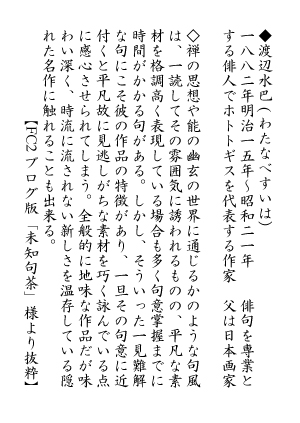 ◆渡辺水巴(わたなべすいは)
一八八二年明治一五年〜昭和二一年　　俳句を専業と
する俳人でホトトギスを代表する作家　　父は日本画家
◇禅の思想や能の幽玄の世界に通じるかのような句風
は、一読してその雰囲気に誘われるものの、平凡な素
材を格調高く表現している場合も多く句意掌握までに
時間がかかる句がある。しかし、そういった一見難解
な句にこそ彼の作品の特徴があり、一旦その句意に近
付くと平凡故に見逃しがちな素材を巧く詠んでいる点
に感心させられてしまう。全般的に地味な作品だが味
わい深く、時流に流されない新しさを温存している隠
れた名作に触れることも出来る。
【FC2ブログ版「未知句茶」様より抜粋】